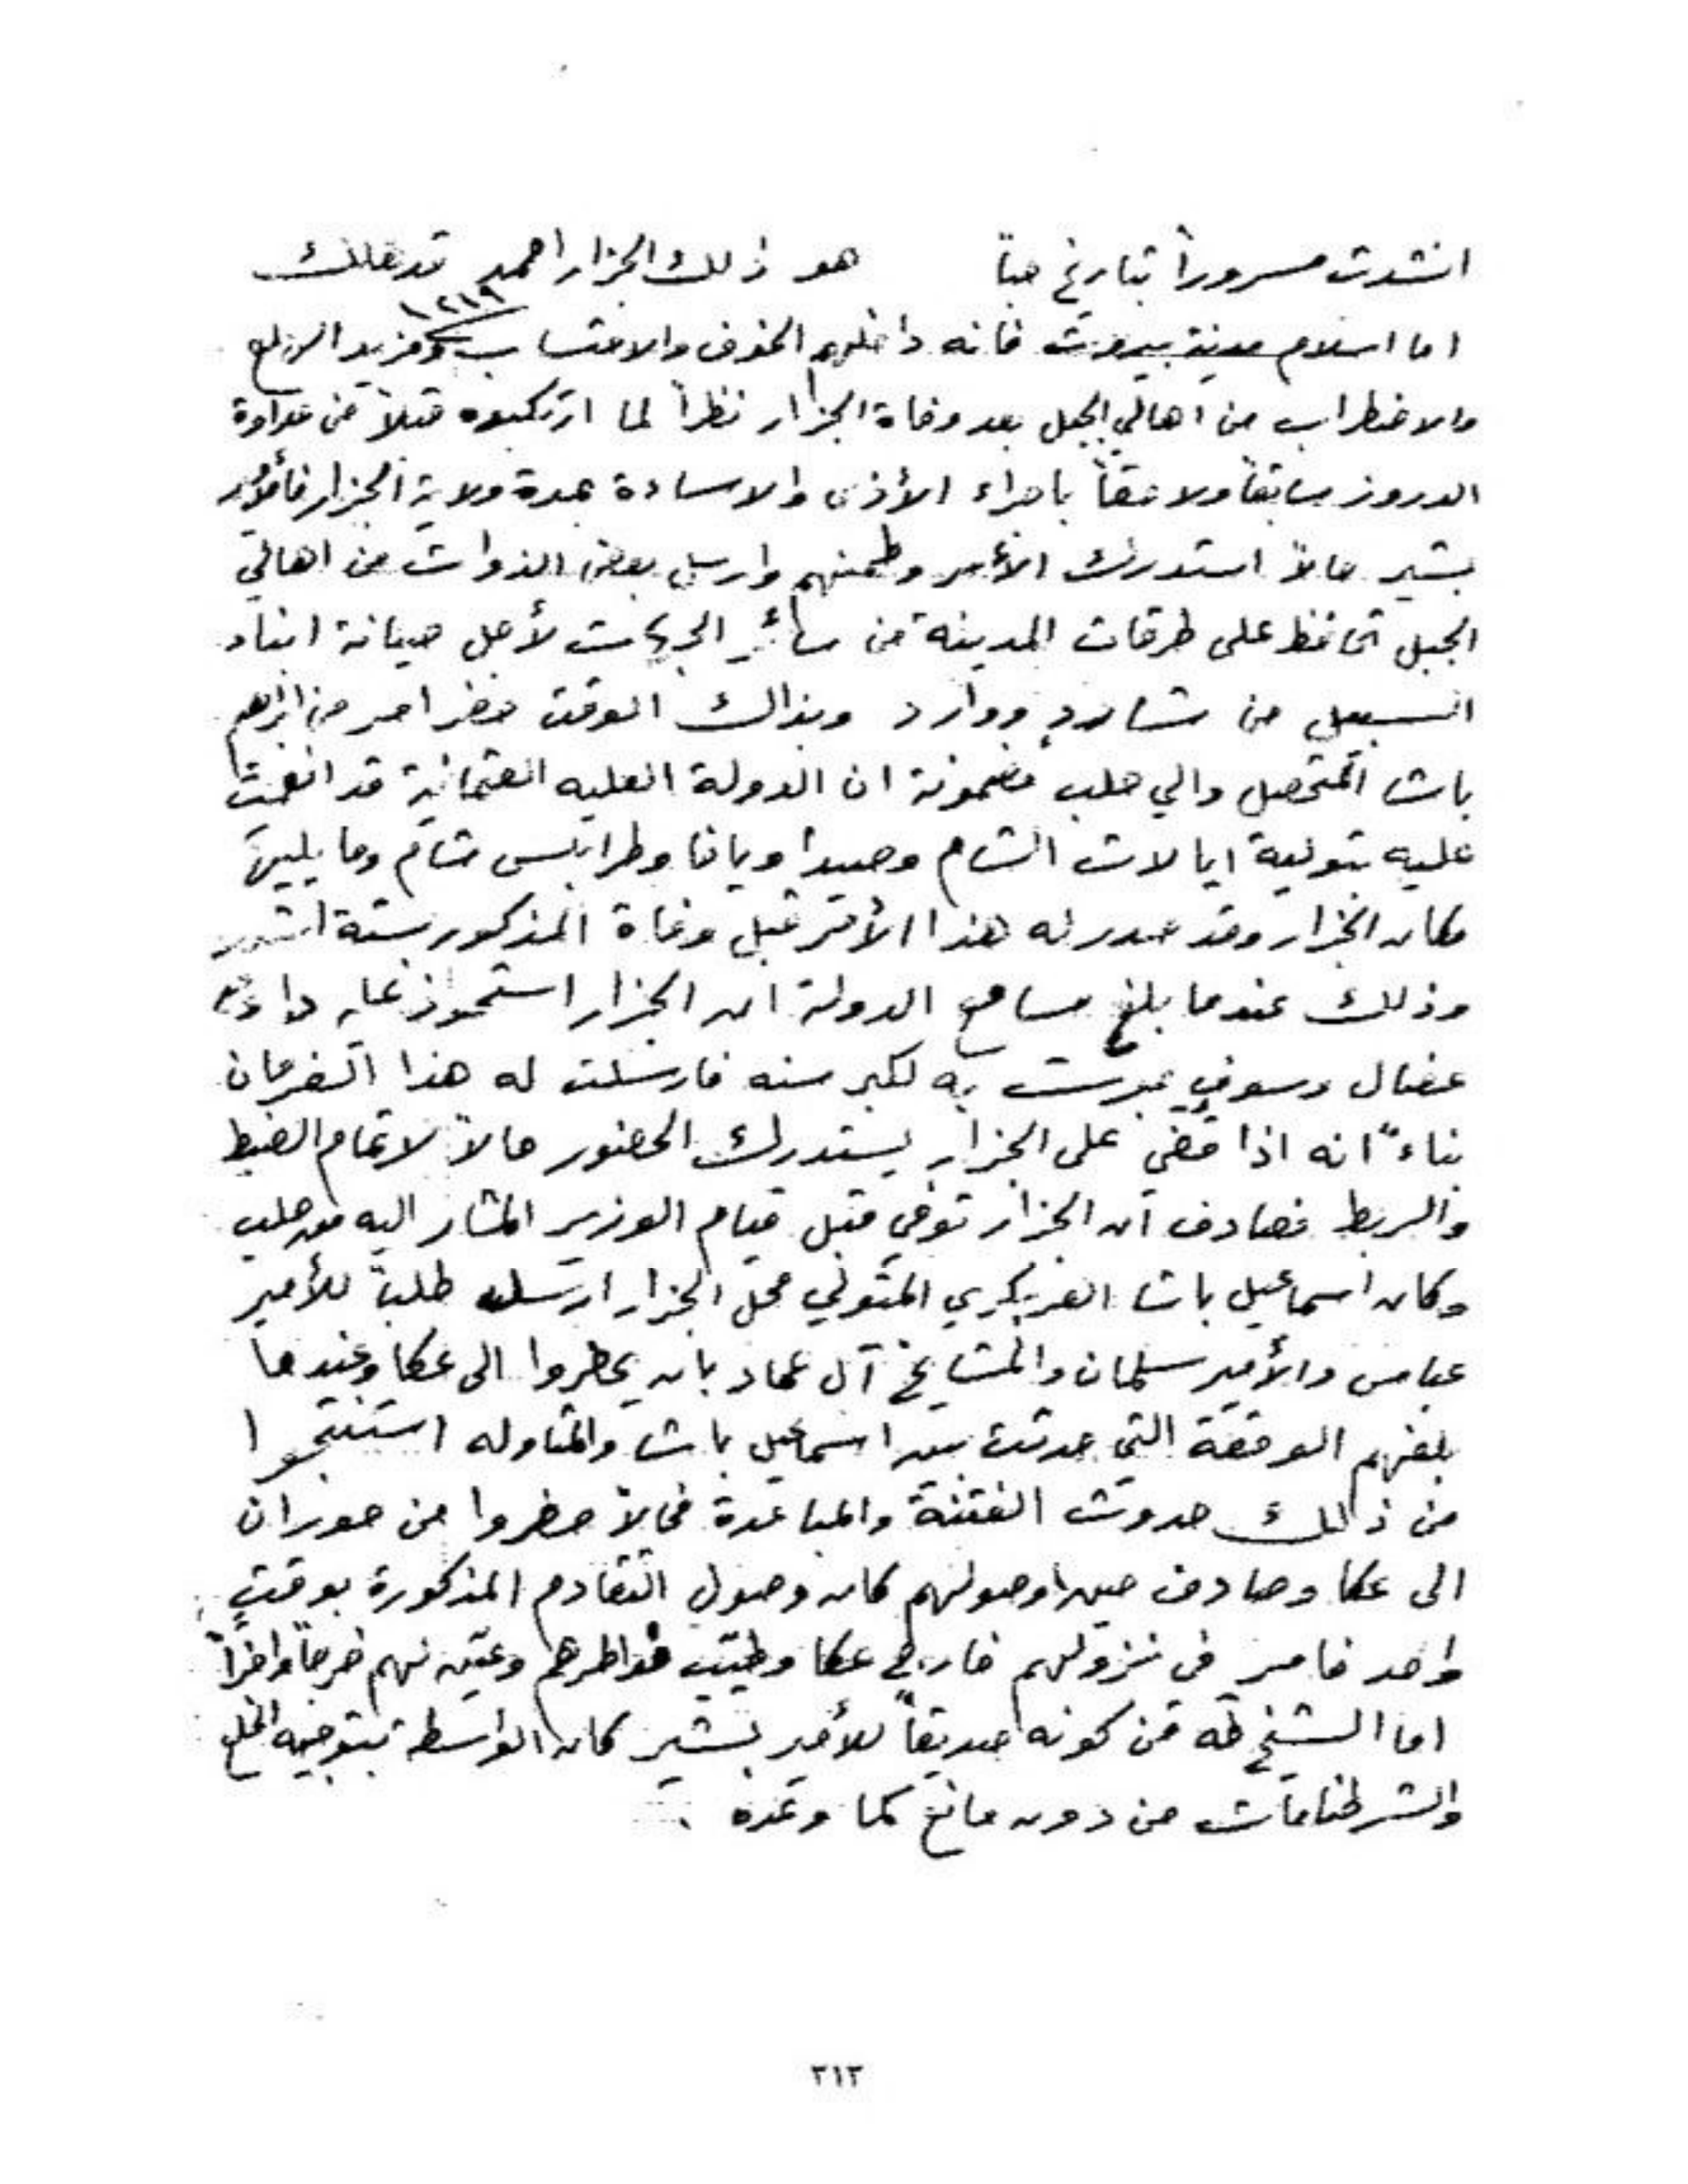 انشدت مسروراً بتاريخ حباً هو ذلك الجزار احمد قد هلك
١٢١٩
اما اسلام مدينة بيروت فانه داخلهم الخوف والاحتساب ومزيد الهلع
والاضطراب من اهالي الجبل بعد وفاة الجزار نظراً لما ارتكبوه قبلاً من عداوة
الدروز سابقاً ولاحقاً باجراء الأذى والاساءة بمدة ولاية الجزار فالأمير
بشير حالاً استدرك الأمر وطمنهم وارسل بعض الذوات من اهالي
الجبل تحافظ على طرقات المدينة من سائر الجهات لأجل صيانة ابناء
السبيل من شارد ووارد وبذاك الوقت حضر امر من ابراهيم
باشا المتحصل والي حلب مضمونة ان الدولة العليه العثمانية قد انعمت
عليه بتولية ايالات الشام وصيدا ويافا وطرابلس شام وما يليهم
مكان الجزار وقد صدر له هذا الأمر قبل وفاة المذكور بستة اشهر
وذلك عندما بلغ مسامع الدولة ان الجزار استحوذ عليه داء
عضال وسوف يموت به لكبر سنه فارسلت له هذا الفرمان
بناءً انه اذا قضي على الجزار يستدرك الحضور حالاً لاتمام الضبط
والربط فصادف ان الجزار توفي قبل قيام الوزير المشار اليه من حلب
وكان اسماعيل باشا المتولي محل الجزار ارسل طلب للأمير
عباس والأمير سلمان والمشايخ آل عماد بان يحظروا الى عكا وعندما
بلغهم الوقعة التي حدثت بين اسماعيل باشا والمتاوله استنتجوا
من ذلك حدوث الفتنة والمباعدة فحالاً حضروا من حوران
الى عكا وصادف حين وصولهم كان وصول التقادم المذكورة بوقتٍ
واحد فامر في نزولهم خارج عكا وطيّب خواطرهم وعيّن لهم خرجاً وافراً
اما الشيخ طه فمن كونه صديقاً للأمير بشير كان الواسطة بتوجيه الخلع
والشرطنامات من دون مانع كما وعده .
٣١٢